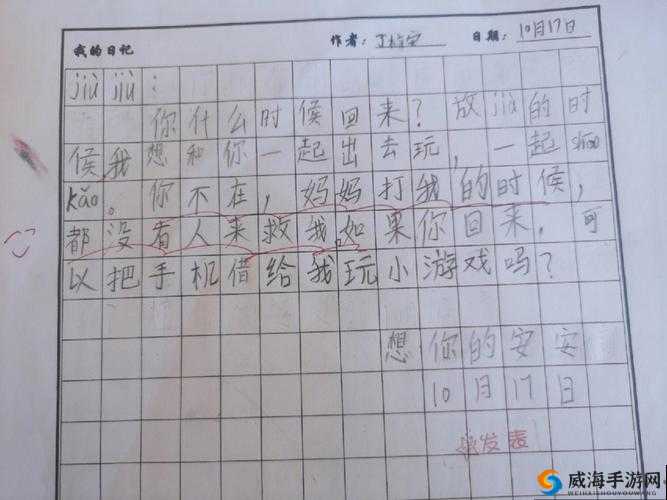 我的日记 作者： 日期：10月17日
jiù jiù：
你什么时候回来？放jià的时
候我想和你一起出去玩，一起shāo
kǎo。你不在，妈妈打我的时候，
都没有人来救我。如果你回来，可
以把手机借给我玩小游戏吗？
想你的安安
10月17日
发表
威海手游网
WEIHAISHOUYOUWANG